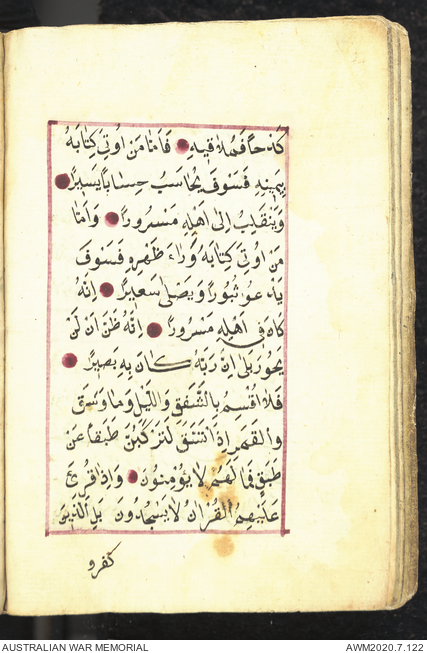 كَدْحًا فَمُلَاقِيهِ فَاَمَّا مَنْ اُوتِىَ كِتَابَهُ
بِيَمِينِهِ فَسَوْفَ يُحَاسَبُ حِسَابًا يَسِيرًا
وَيَنْقَلِبُ اِلٰى اَهْلِهِ مَسْرُورًا وَاَمَّا
مَنْ اُوتِىَ كِتَابَهُ وَرَاءَ ظَهْرِهِ فَسَوْفَ
يَدْعُو ثُبُورًا وَيَصْلٰى سَعِيرًا اِنَّهُ
كَانَ فِى اَهْلِهِ مَسْرُورًا اِنَّهُ ظَنَّ اَنْ لَنْ
يَحُورَ بَلٰى اِنَّ رَبَّهُ كَانَ بِهِ بَصِيرًا
فَلَا اُقْسِمُ بِالشَّفَقِ وَالَّيْلِ وَمَا وَسَقَ
وَالْقَمَرِ اِذَا اتَّسَقَ لَتَرْكَبُنَّ طَبَقًا عَنْ
طَبَقٍ فَمَا لَهُمْ لَا يُؤْمِنُونَ وَاِذَا قُرِئَ
عَلَيْهِمُ الْقُرْاٰنُ لَا يَسْجُدُونَ بَلِ الَّذِينَ
كفرو
AUSTRALIAN WAR MEMORIAL
AWM2020.7.122